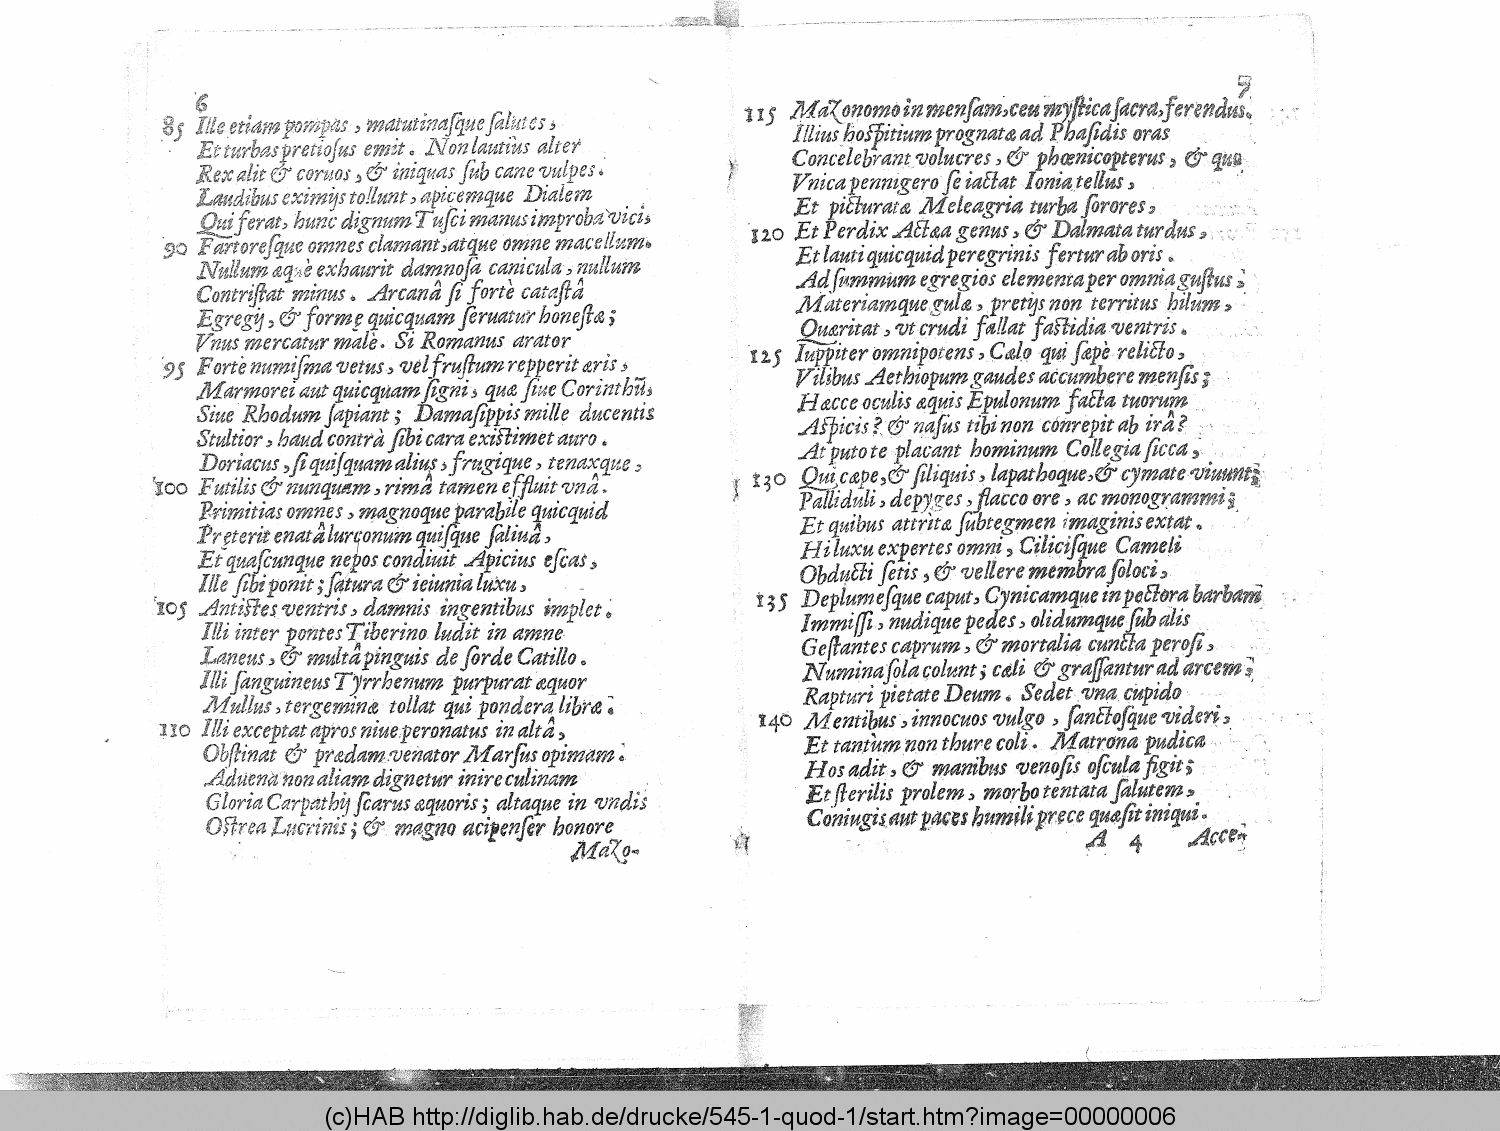 6
85 Ille etiam pompas, matutinaſque ſalutes,
Et turbas pretioſus emit. Non lautiùs alter
Rex alit & coruos, & iniquas ſub cane vulpes.
Laudibus eximijs tollunt, apicemque Dialem
Qui ferat, hunc dignum Tuſci manus improba vici,
90 Fartoreſque omnes clamant, atque omne macellum.
Nullum æquè exhaurit damnoſa canicula, nullum
Contriſtat minus. Arcanâ ſi fortè cataſtâ
Egregij, & formę quicquam ſeruatur honeſtæ;
Vnus mercatur malè. Si Romanus arator
95 Fortè numiſma vetus, vel fruſtum repperit æris,
Marmorei aut quicquam ſigni, quæ ſiue Corinthũ,
Siue Rhodum ſapiant; Damaſippis mille ducentis
Stultior, haud contrà ſibi cara exiſtimet auro.
Doriacus, ſi quiſquam alius, frugique, tenaxque,
100 Futilis & nunquam, rimâ tamen effluit vnâ.
Primitias omnes, magnoque parabile quicquid
Pręterit enatâ lurconum quiſque ſaliuâ,
Et quaſcunque nepos condiuit Apicius eſcas,
Ille ſibi ponit; ſatura & ieiunia luxu,
105 Antiſtes ventris, damnis ingentibus implet.
Illi inter pontes Tiberino ludit in amne
Laneus, & multâ pinguis de ſorde Catillo.
Illi ſanguineus Tyrrhenum purpurat æquor
Mullus, tergeminæ tollat qui pondera libræ.
110 Illi exceptat apros niue peronatus in altâ,
Obſtinat & prædam venator Marſus opimam.
Aduena non aliam dignetur inire culinam
Gloria Carpathij ſcarus æquoris; altaque in vndis
Oſtrea Lucrinis; & magno acipenſer honore
Mazo-
7
115 Mazonomo in menſam, ceu myſtica ſacra, ferendus.
Illius hoſpitium prognatæ ad Phaſidis oras
Concelebrant volucres, & phœnicopterus, & qua
Vnica pennigero ſe iactat Ionia tellus,
Et picturatæ Meleagria turba ſorores,
120 Et Perdix Actæa genus, & Dalmata turdus,
Et lauti quicquid peregrinis fertur ab oris.
Ad ſummum egregios elementa per omnia guſtus;
Materiamque gulæ, pretijs non territus hilum,
Quæritat, vt crudi fallat faſtidia ventris.
125 Iuppiter omnipotens, Cælo qui ſæpè relicto,
Vilibus Aethiopum gaudes accumbere menſis;
Hæcce oculis æquis Epulonum facta tuorum
Aſpicis? & naſus tibi non conrepit ab irâ?
At puto te placant hominum Collegia ſicca,
130 Qui cæpe, & ſiliquis, lapathoque, & cymate viuunt;
Palliduli, depyges, flacco ore, ac monogrammi;
Et quibus attritæ ſubtegmen imaginis extat.
Hi luxu expertes omni, Ciliciſque Cameli
Obducti ſetis, & vellere membra ſoloci,
135 Deplumeſque caput, Cynicamque in pectora barbam
Immiſſi, nudique pedes, olidumque ſub alis
Geſtantes caprum, & mortalia cuncta peroſi,
Numina ſola colunt; cæli & graſſantur ad arcem;
Rapturi pietate Deum. Sedet vna cupido
140 Mentibus, innocuos vulgo, ſanctoſque videri,
Et tantùm non thure coli. Matrona pudica
Hos adit, & manibus venoſis oſcula figit;
Et ſterilis prolem, morbo tentata ſalutem,
Coniugis aut paces humili prece quæſit iniqui.
A 4 Acce-
(c)HAB http://diglib.hab.de/drucke/545-1-quod-1/start.htm?image=00000006